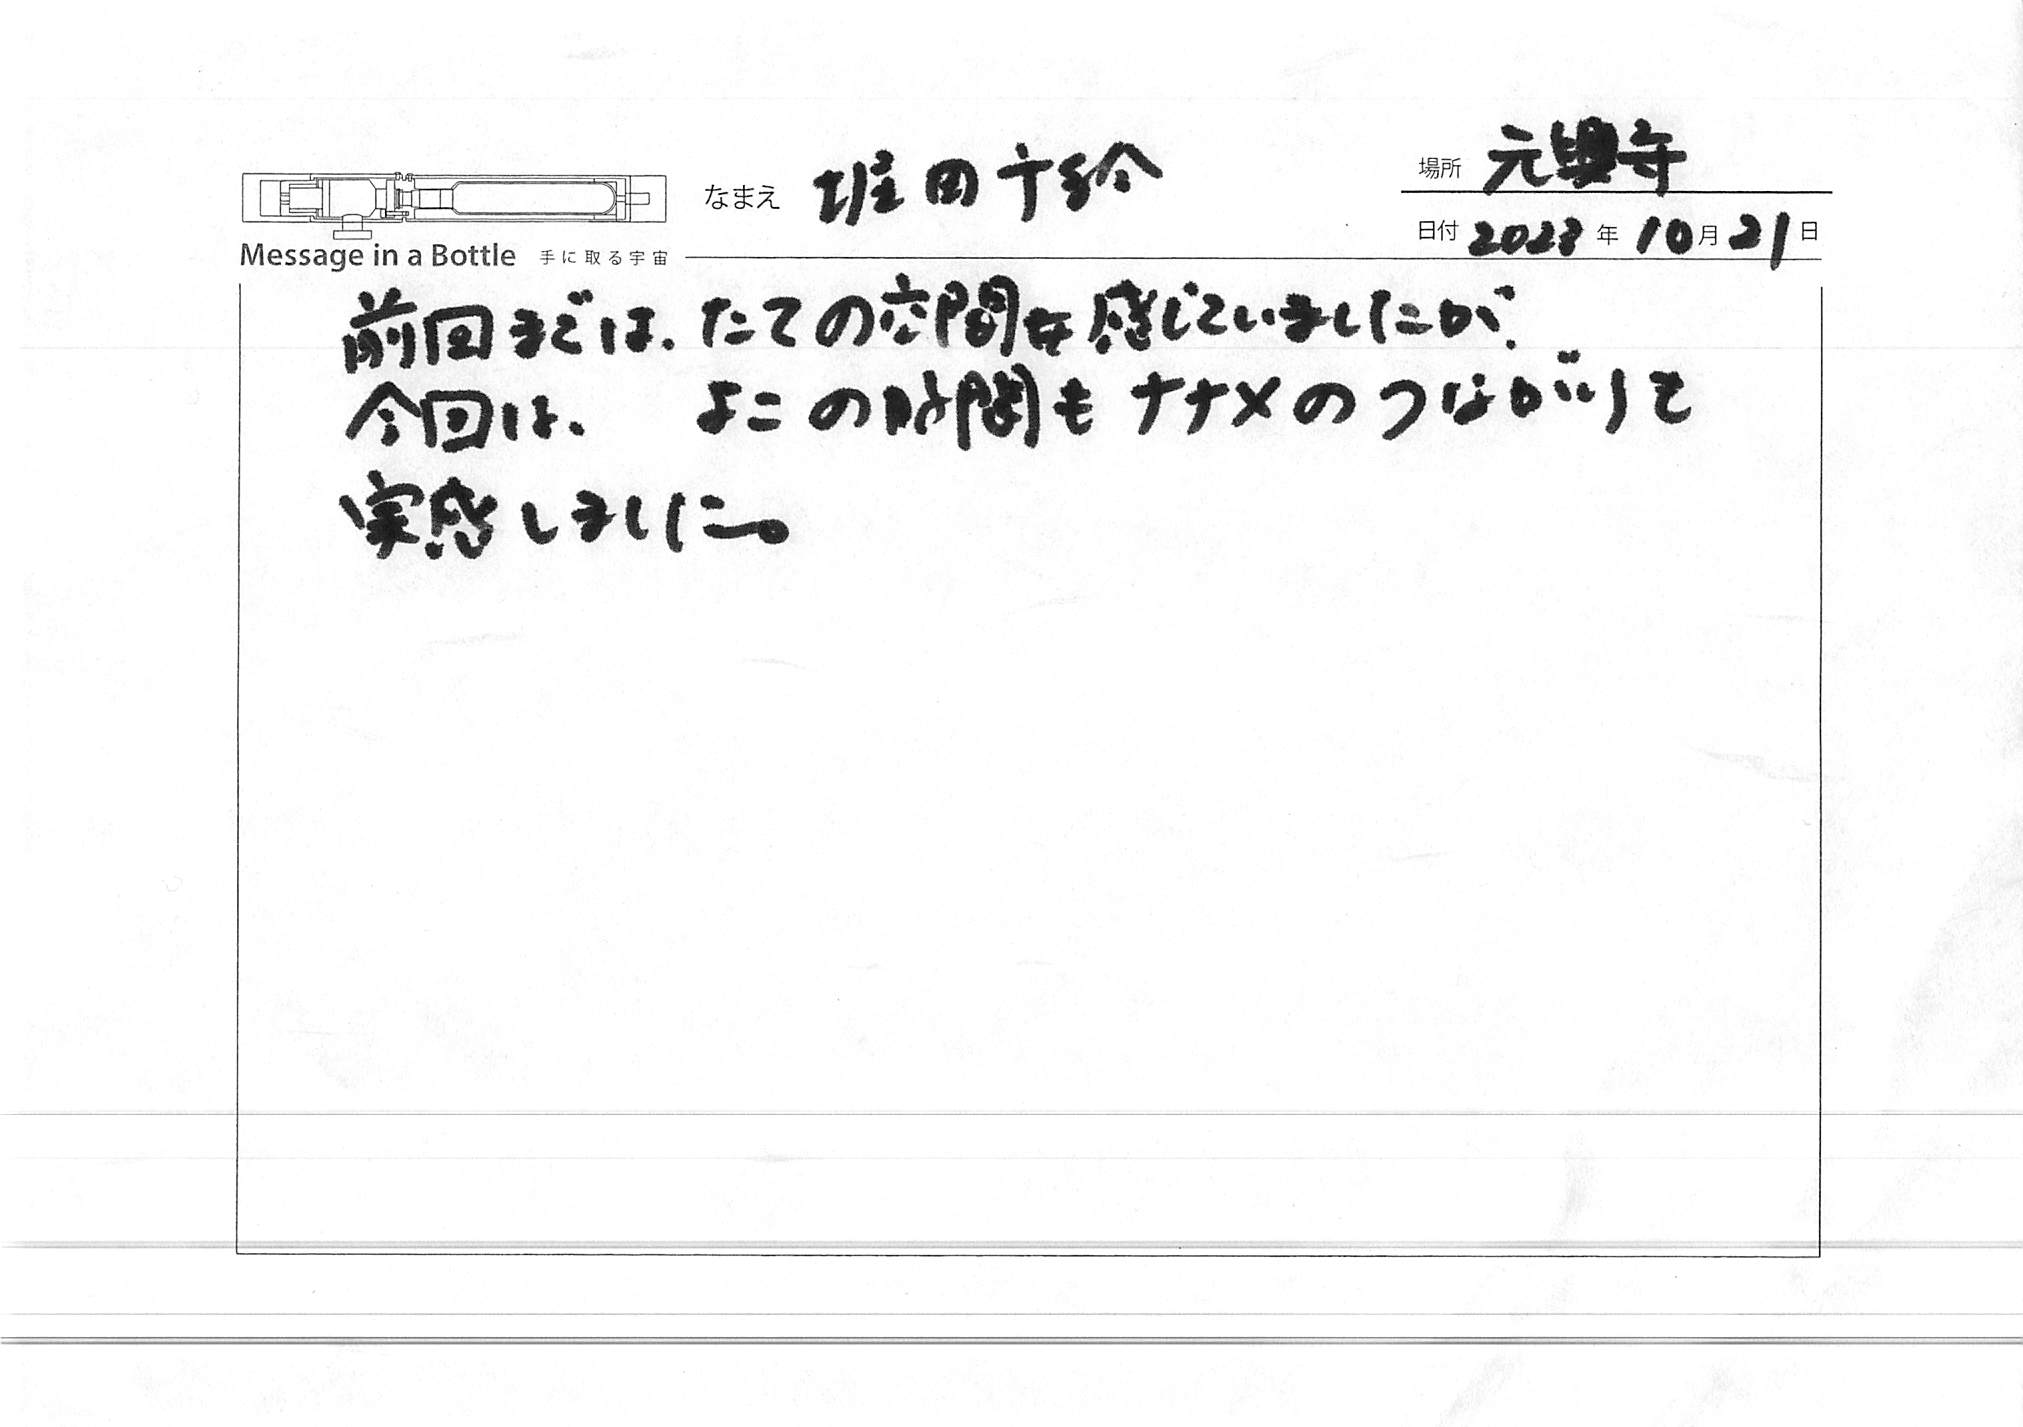 なまえ 堀田千鈴
場所 元興寺
日付 2023年10月21日
Message in a Bottle 手に取る宇宙
前回までは、たての空間を感じていましたが、
今回は、よこの時間もナナメのつながりも
実感しました。